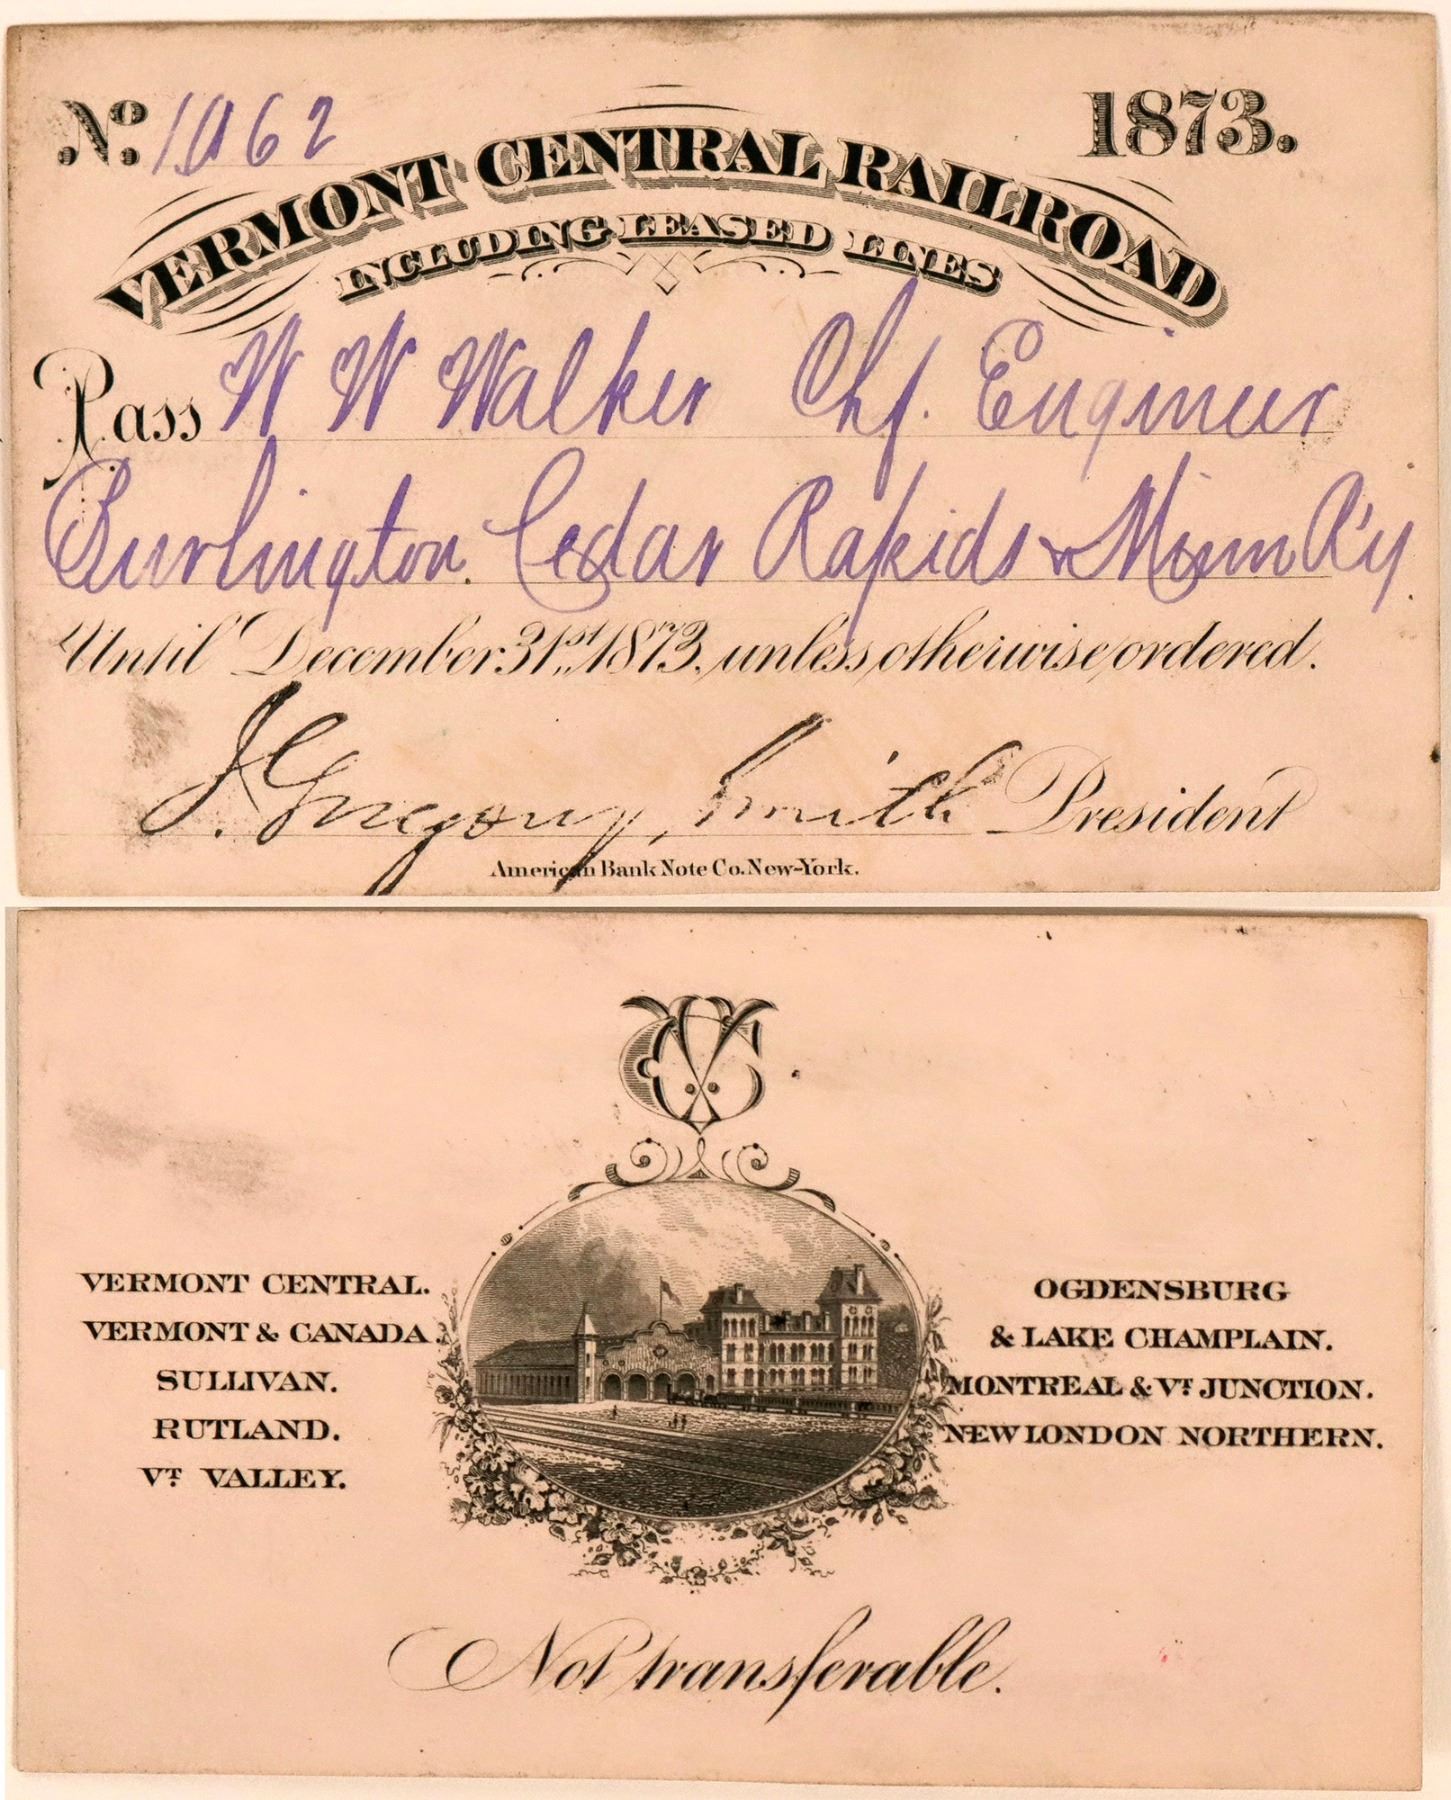 No. 1062
1873.
VERMONT CENTRAL RAILROAD
INCLUDING LEASED LINES
Pass W W Walker Chf. Engineer
Burlington. Cedar Rapids & Minn R'y.
Until December 31st, 1873, unless otherwise ordered.
J. Gregory Smith President
American Bank Note Co. New-York.
VC
VERMONT CENTRAL.
VERMONT & CANADA.
SULLIVAN.
RUTLAND.
VT VALLEY.
OGDENSBURG
& LAKE CHAMPLAIN.
MONTREAL & VT JUNCTION.
NEW LONDON NORTHERN.
Not transferable.